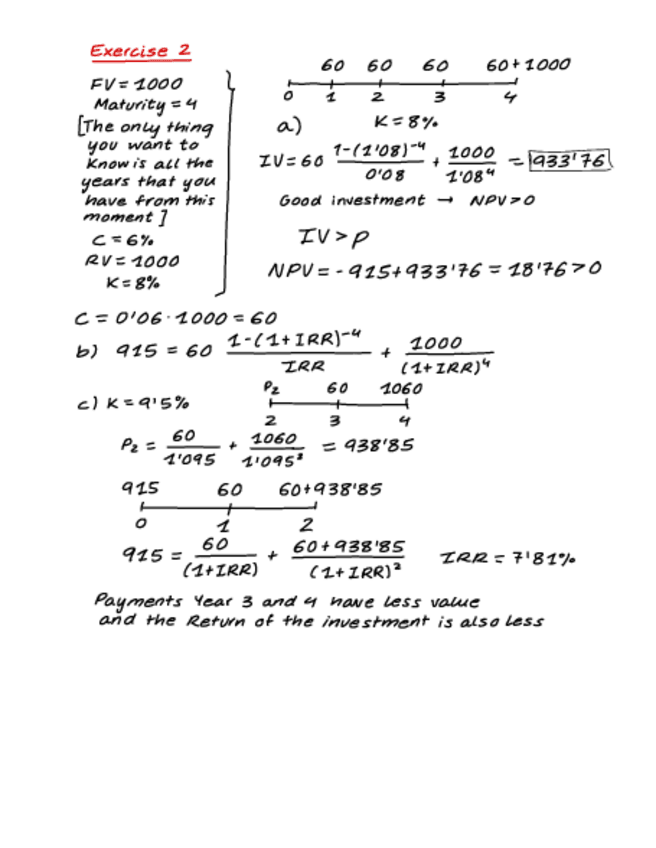 Exercise 2
FV = 1000
Maturity = 4
[The only thing
you want to
Know is all the
years that you
have from this
moment ]
C = 6%
RV = 1000
K = 8%
60 60 60 60+1000
0 1 2 3 4
a) K = 8%
IV = 60 1-(1'08)^-4 / 0'08 + 1000 / 1'08^4 = 933'76
Good investment → NPV > 0
IV > P
NPV = - 915 + 933'76 = 18'76 > 0
C = 0'06 · 1000 = 60
b) 915 = 60 1-(1+IRR)^-4 / IRR + 1000 / (1+IRR)^4
c) K = 9'5%
P2 60 1060
2 3 4
P2 = 60 / 1'095 + 1060 / 1'095² = 938'85
915 60 60+938'85
0 1 2
915 = 60 / (1+IRR) + 60+938'85 / (1+IRR)² IRR = 7'81%
Payments Year 3 and 4 have less value
and the Return of the investment is also less